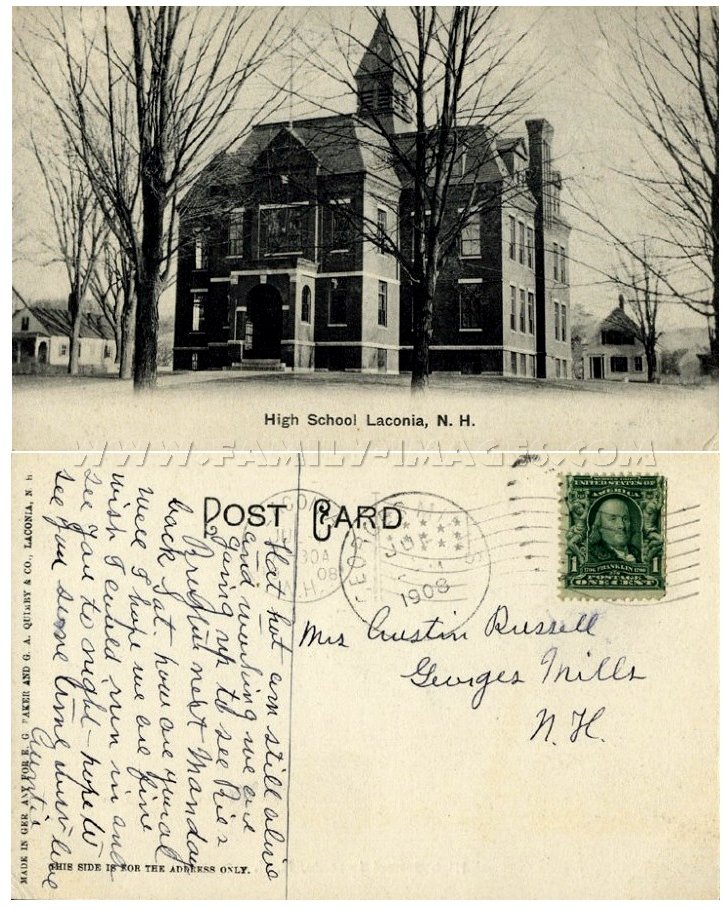 High School Laconia, N. H.
WWW.FAMILY-IMAGES.COM
POST CARD
UNITED STATES OF AMERICA
1
1706 FRANKLIN 1790
POSTAGE
ONE CENT
1908
Mrs Austin Russell
Georges Mills
N. H.
Hot hot am still alive
and working we are
going up to see
next Monday
back Sat. how are you all
well I hope we are fine
wish I could run in and
see you to night – hope to
see you some time much love
MADE IN GERMANY FOR E. G. BAKER AND G. A. QUIMBY & CO., LACONIA, N. H
THIS SIDE IS FOR THE ADDRESS ONLY.